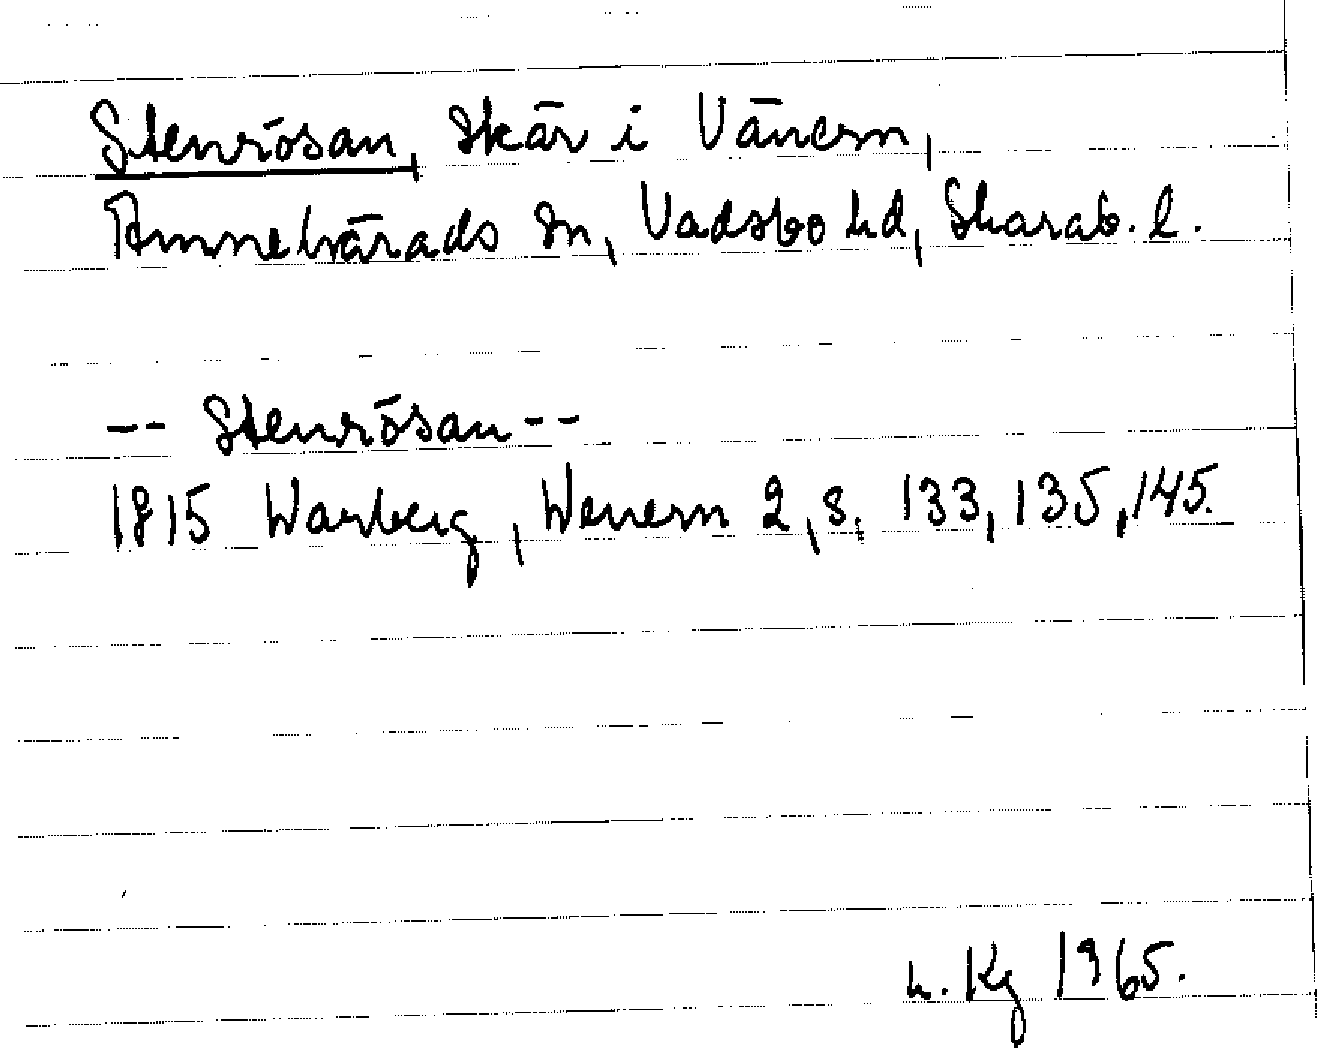 Stenrösan, skär i Vänern,
Amnehärads sn, Vadsbo hd, Skarab. l.
-- Stenrösan --
1815 Warberg, Wenern 2, s. 133, 135, 145.
h. Kg 1965.